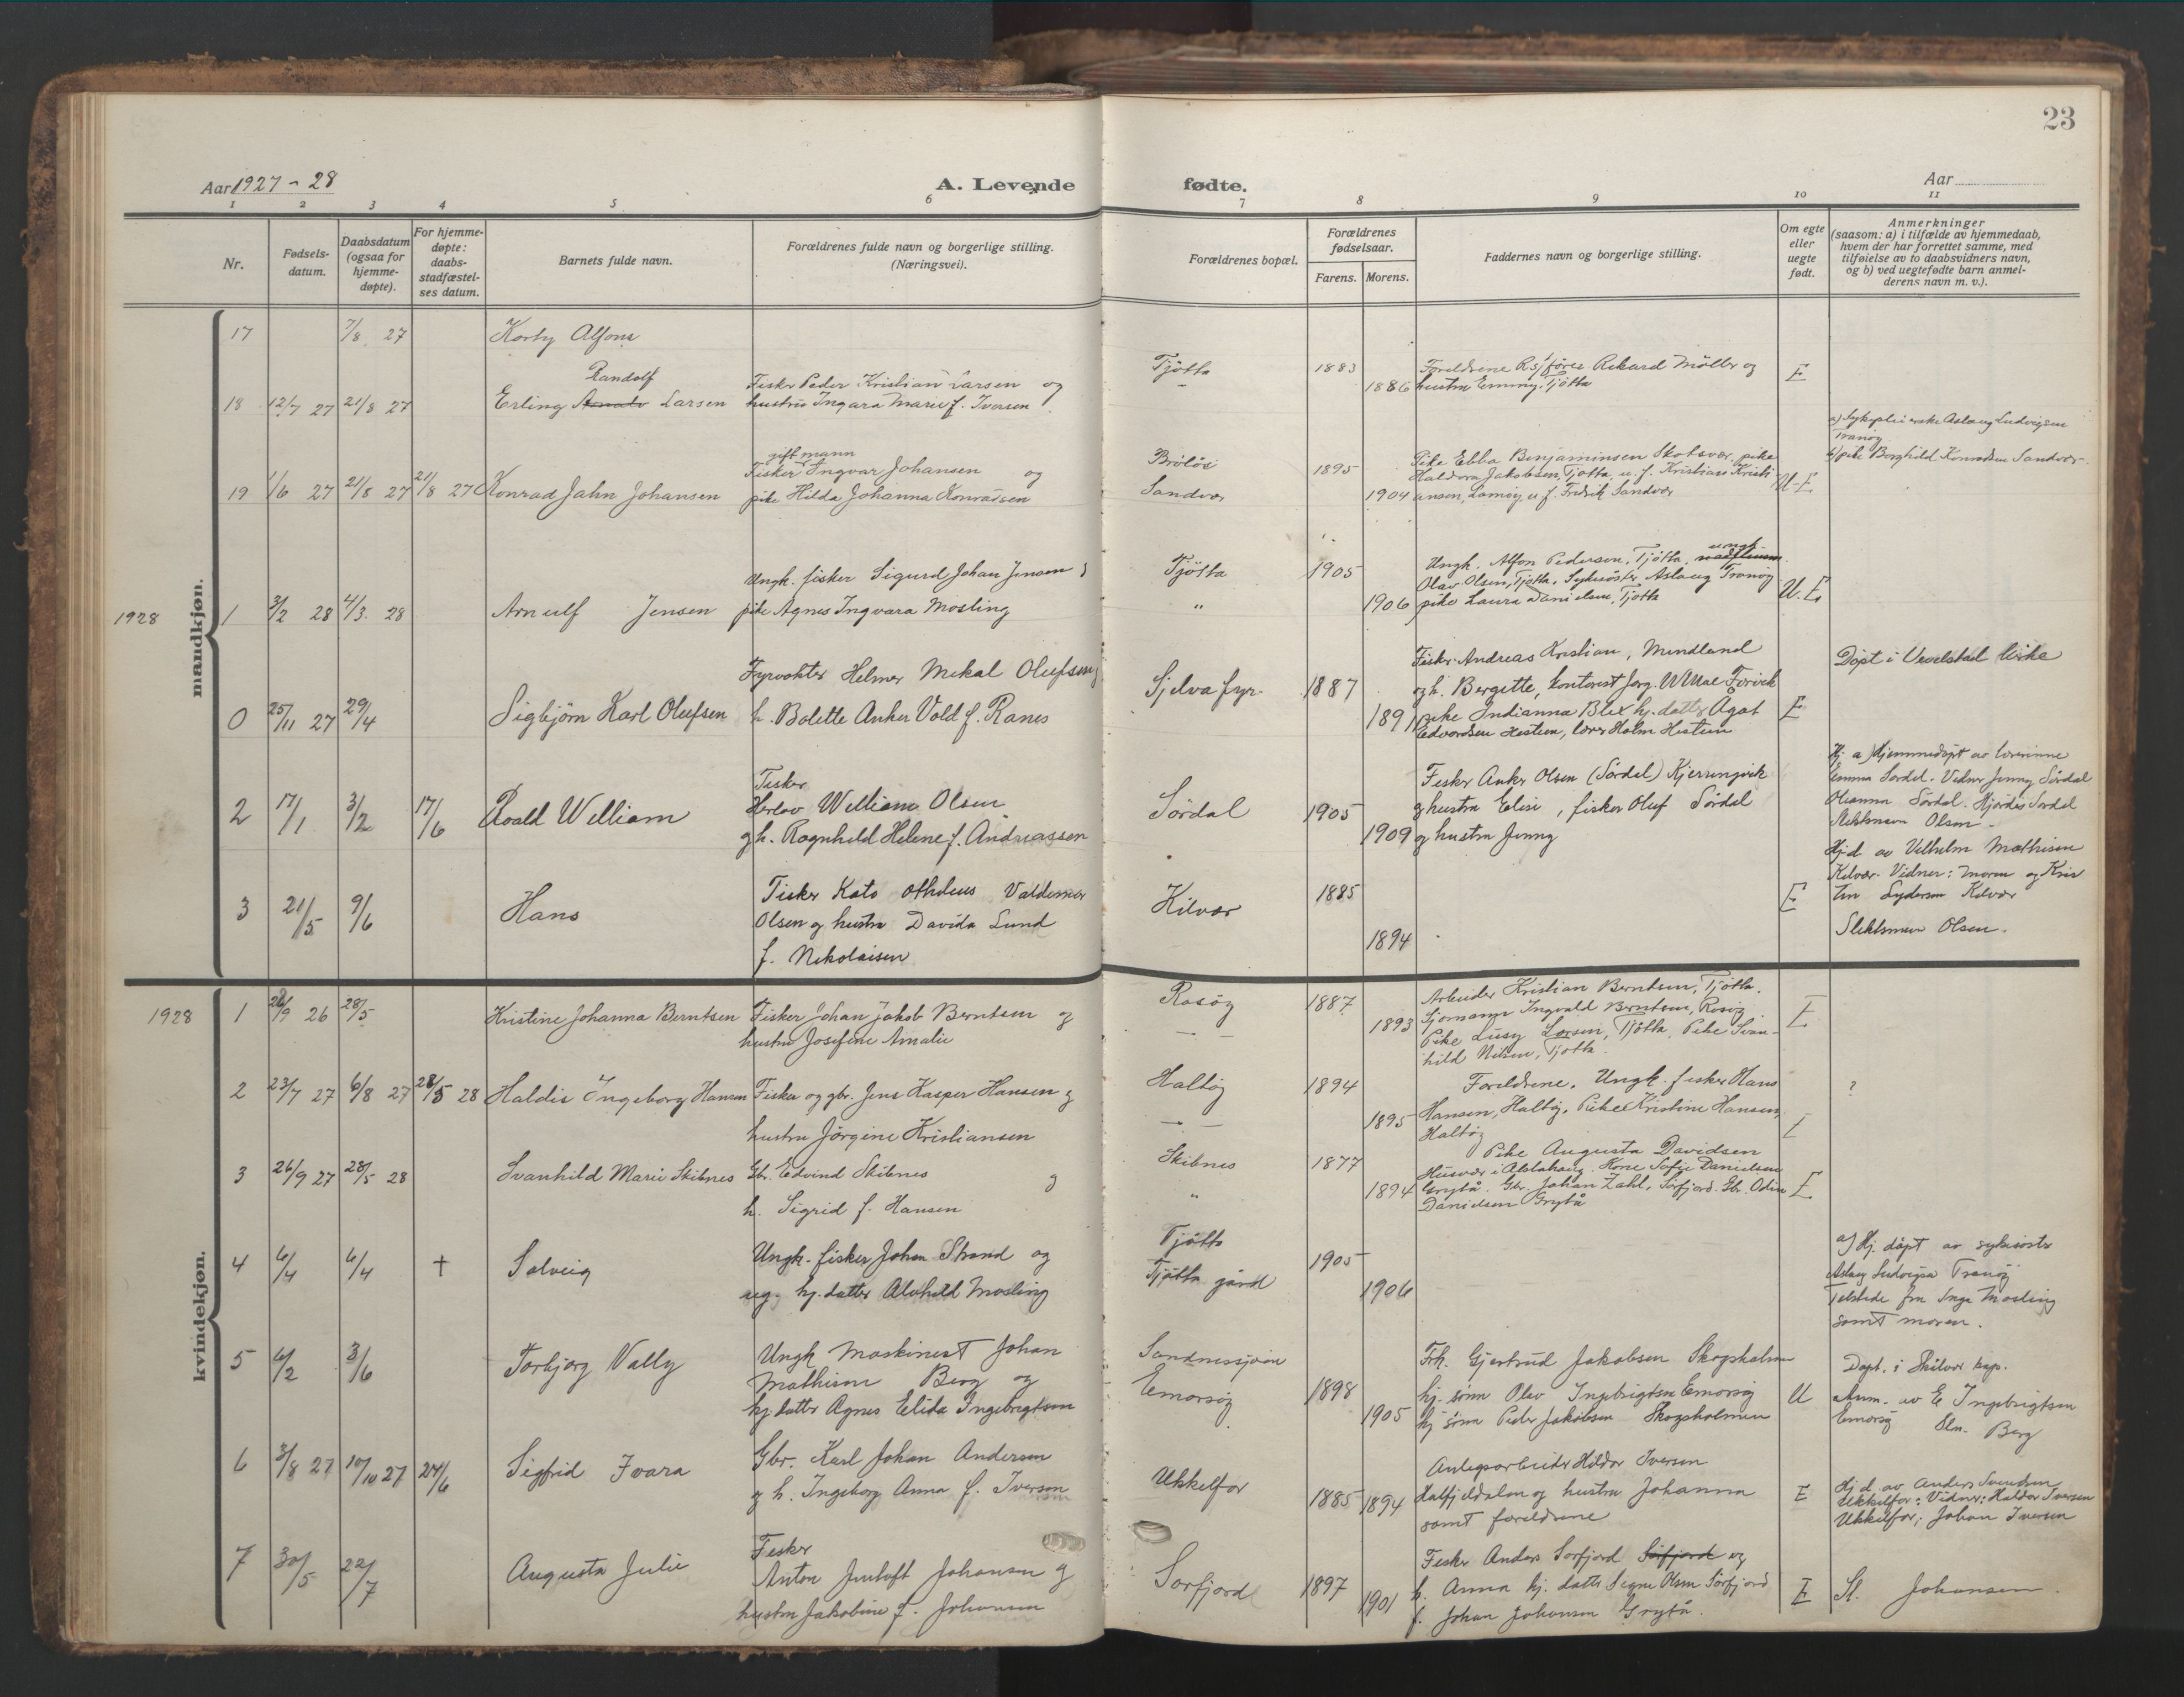 23
Aar 1927-28
A. Levende fødte.
Aar
1 2 3 4 5 6 7 8 9 10 11
Nr.
Fødsels-
datum.
Daabsdatum
(ogsaa for
hjemme-
døpte).
For hjemme-
døpte:
daabs-
stadfæstel-
ses datum.
Barnets fulde navn.
Forældrenes fulde navn og borgerlige stilling.
(Næringsvei).
Forældrenes bopæl.
Forældrenes
fødselsaar.
Farens. Morens.
Faddernes navn og borgerlige stilling.
Om egte
eller
uegte
født.
Anmerkninger
(saasom: a) i tilfælde av hjemmedaab,
hvem der har forrettet samme, med
tilføielse av to daabsvidners navn,
og b) ved uegtefødte barn anmel-
derens navn m. v.).
mandkjøn.
17 7/8 27 Korby Alfons
Randolf
18 12/7 27 21/8 27 Erling Larsen
Fisker Peder Kristian Larsen og
hustru Ingara Marie f. Iversen
Tjötta
1883
1886
Foreldrene Rikard Möller og
hustru Emmy, Tjötta
E
19 1/6 27 21/8 27 21/8 27 Konrad Jahn Johansen
gift mann
Fisker Ingvar Johansen og
pike Hilda Johanna Konradsen
Brölös
Sandvær
1895
1904
Pike Ebba Benjaminsen Skotsvær, pike
Haldora Jakobsen, Tjötta, u. f. Kristian Kristi-
ansen, u. f. Fredrik Sandvær
U-E
a) Sykepleierske Aslaug Ludvigsen
Tranöy
b) pike Borghild Konradsen Sandvær
1928
1 3/2 28 4/3 28 Arnulf Jensen
Ungk. fisker Sigurd Johan Jensen
pike Agnes Ingvara Mosling
Tjötta
"
1905
1906
Ungk. Alfon Pedersen, Tjötta, ungk.
Olav Olsen, Tjötta, Sykesöster Aslaug Tranöy
pike Laura Danielsen, Tjötta
U. E.
0 25/11 27 29/4 Sigbjörn Karl Olufsen
Fyrvokter Helmer Mikal Olufsen
h. Bolette Anker Vold f. Ranes
Sjelva fyr.
1887
1891
Fisker Andreas Kristian, Mindland
og h. Bergitte, kontorist Forvik
pike Indianna Blix hj. datter Agot
Edvardsen Hestun, lærer Holm Hestun
E
Döpt i Vevelstad kirke
2 17/1 3/2 17/6 Roald William
Fisker
Herlov William Olsen
og h. Ragnhild Helene f. Andreassen
Sördal
1905
1909
Fisker Anker Olsen (Sördal) Kjerringvik
og hustru Elise, fisker Oluf Sördal
og hustru Jenny
Hj. a) Hjemmedöpt av lærerinne
Emma Sördal. Vidner Jenny Sördal
Oleanna Sördal. Hjördis Sördal
Slektsnavn Olsen -
3 21/5 9/6 Hans
Fisker Kato Othelius Valdemar
Olsen og hustru Davida Lund
f. Nikolaisen
Kilvær
1885
1894
E
Hj.d. av Vilhelm Mathisen
Kilvær. Vidner: moren og Kris
tin Sydersen Kilvær
Slektsnavn Olsen.
kvindekjøn.
1928
1 26/9 26 28/5 Kristine Johanna Berntsen
Fisker Johan Jakob Berntsen og
hustru Josefine Amalie
Rosöy
1887
1893
Arbeider Kristian Berntsen, Tjötta.
Sjömann Ingvald Berntsen, Rosöy
Pike Lusy Larsen, Tjötta, Pike Svan-
hild Nilsen, Tjötta.
E
2 23/7 27 6/8 27 28/5 28 Haldis Ingeborg Hansen
Fisker og gbr. Jens Kasper Hansen og
hustru Jörgine Kristiansen
Haltöy
1894
1895
Foreldrene. Ungk. fisker Hans
Hansen, Haltöy, Pike Kristine Hansen,
Haltöy
?
3 26/9 27 28/5 28 Svanhild Marie Skibnes
Gbr. Edvind Skibnes og
h. Sigrid f. Hansen
Skibnes
"
1877
1894
Pike Augusta Davidsen
Husvær i Alstahaug. Kone Sofie Danielsen
Grytå. Gbr. Johan Zahl, Sörfjord. Gbr. Odin
Danielsen Grytå
E
4 6/4 6/4 † Solveig
Ungk. fisker Johan Strand og
ug. hj. datter Alvhild Mosling
Tjötta
Tjötta gård
1905
1906
a) Hj. döpt av sykesöster
Aslaug Ludvigsen Tranöy
Tilstede fru Inga Mosling
samt moren.
5 6/2 3/6 Torbjorg Vally
Ungk maskinist Johan
Mathison Berg og
hj. datter Agnes Elida Ingebrigtsen
Sandnessjöen
Emorsöy
1898
1905
Frk. Gjertrud Jakobsen Skogsholmen
hj. sönn Olav Ingebrigtsen Emorsöy
hj sönn Peder Jakobsen Skogsholmen
U
Döpt. i Skilvær kap.
Anm. av E Ingebrigtsen
Emorsöy Sln. Berg
6 3/8 27 10/10 27 24/6 Sigfrid Ivara
Gbr. Karl Johan Andersen
og h. Ingeborg Anna f. Iversen
Ukkelfor
1885 1894
Anlegsarbeider Hildor Iversen
Halfjeldalen og hustru Johanna
samt foreldrene
E
Hj d av Anders Svendsen
Ukkelfor; Vidner: Haldor Iversen
Ukkelfor; Johan Iversen
7 30/5 22/7 Augusta Julie
Fisker
Anton Johansen og
hustru Jakobine f. Johansen
Sorfjord
1897
1901
Fisker Anders Sorfjord Sörfjord og
h. Anna hj. datter Signe Olsen Sörfjord
f. Johan Johansen Grytå.
E
Sl. Johansen